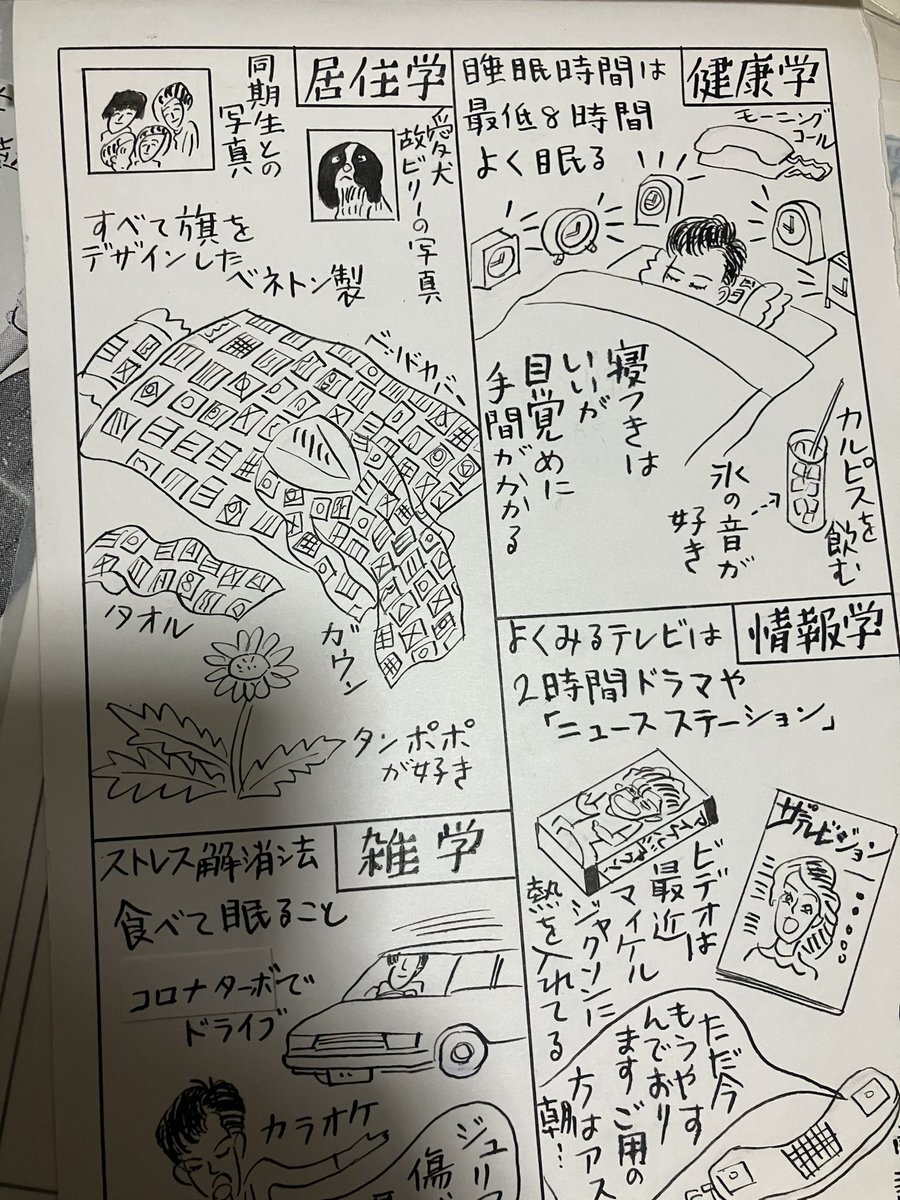 健康学
睡眠時間は
最低8時間
よく眠る
モーニング
コール
寝つきは
いいが
目覚めに
手間がかかる
カルピスを
飲む
氷の音が
好き
居住学
同期生との
写真
愛犬
故ビリーの写真
すべて旗を
デザインした
ベネトン製
ベッドカバー
タオル
ガウン
タンポポ
が好き
情報学
よくみるテレビは
2時間ドラマや
「ニュースステーション」
ザテレビジョン
ビデオは
最近
マイケル
ジャクソンに
熱を入れてる
ただ今
もうやす
んでおり
ます ご用の
方はアス
朝…
雑学
ストレス解消法
食べて眠ること
コロナターボで
ドライブ
カラオケ
ジュリ
傷